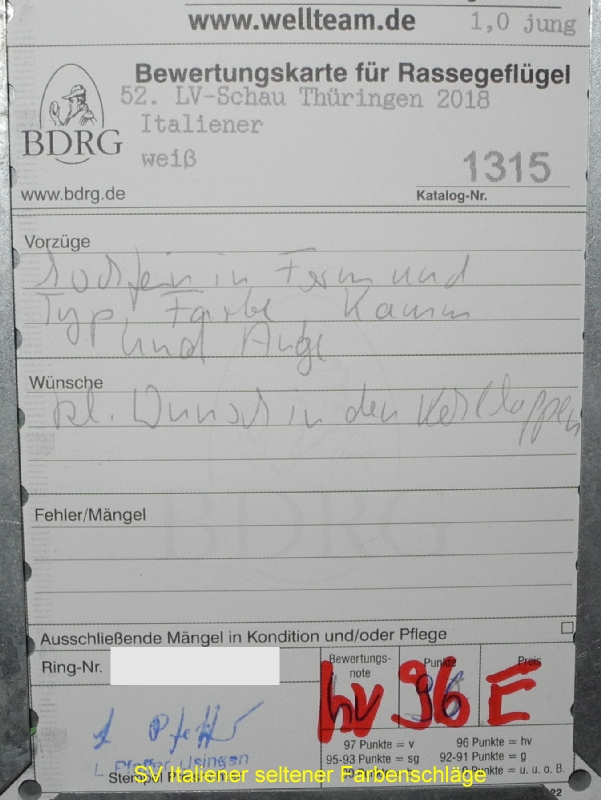 www.wellteam.de 1,0 jung
Bewertungskarte für Rassegeflügel
52. LV-Schau Thüringen 2018
Italiener
BDRG
weiß
1315
www.bdrg.de
Katalog-Nr.
Vorzüge
hochfein in Form und
Typ, Farbe, Kamm
und Auge
Wünsche
kl. Wunsch in den Kehllappen
Fehler/Mängel
BDRG
Ausschließende Mängel in Kondition und/oder Pflege
Ring-Nr.
Bewertungsnote
Punkte
Preis
hv 96 E
L Pfeffer
L. Pfeffer Usingen
97 Punkte = v 96 Punkte = hv
95-93 Punkte = sg 92-91 Punkte = g
0 Punkte = u. u. o. B.
Stempel
SV Italiener seltener Farbenschläge
22